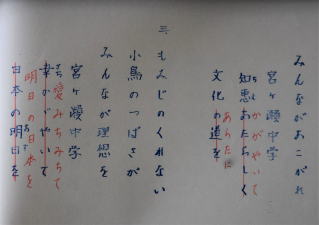 みんながあこがれ
宮ヶ瀬中学
かがやいて
知恵あたらしく
あらたに
文化の道を
三
もみじのくれない
小鳥のつばさが
みんなが理想を
宮ヶ瀬中学
愛みちみちて
幸かがやいて
明日の日本を
日本の明日を